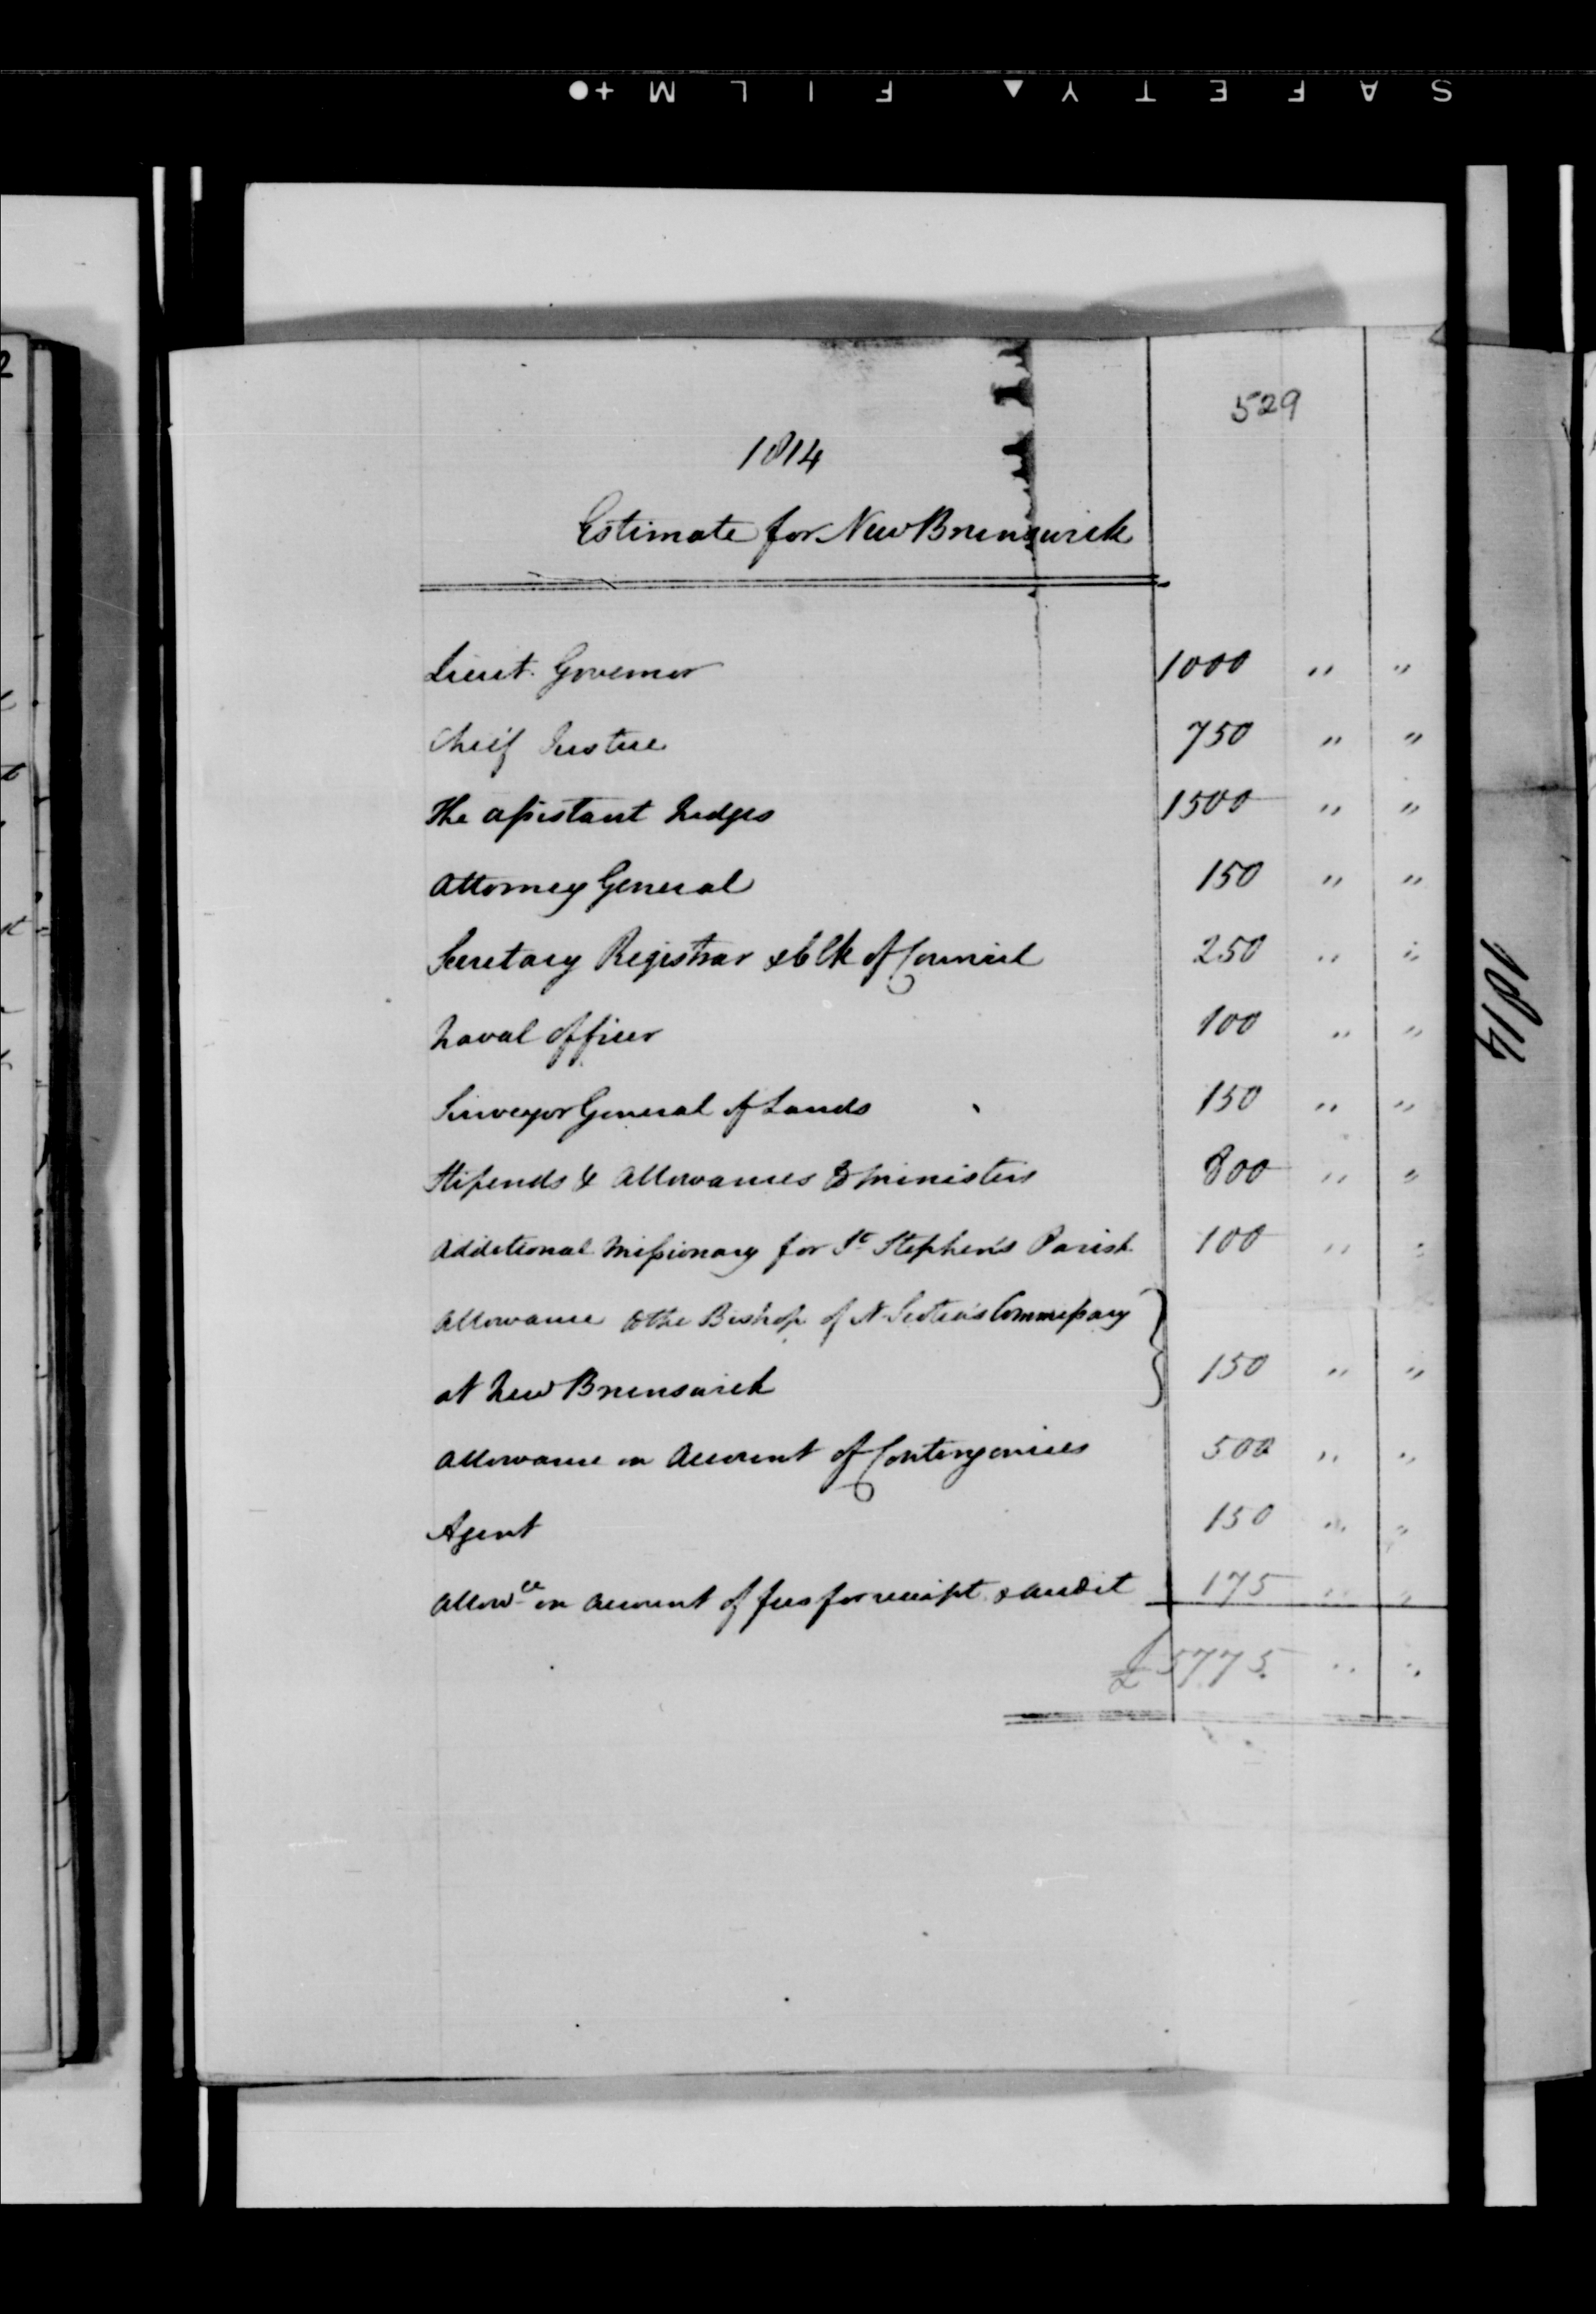 SAFETY ▲ FILM +●
529
1814
Estimate for New Brunswick
Lieut. Governor 1000 " "
Chief Justice 750 " "
The assistant Judges 1500 " "
Attorney General 150 " "
Secretary Registrar & Clk of Council 250 " "
Naval Officer 100 " "
Surveyor General of Lands 150 " "
Stipends & Allowances to Ministers 800 " "
Additional Missionary for St Stephen's Parish 100 " "
Allowance to the Bishop of N. Scotia's Commissary
at New Brunswick 150 " "
Allowance on Account of Contingencies 500 " "
Agent 150 " "
Allowce on Account of fees for receipt & audit 175 " "
£5775 " "
1814